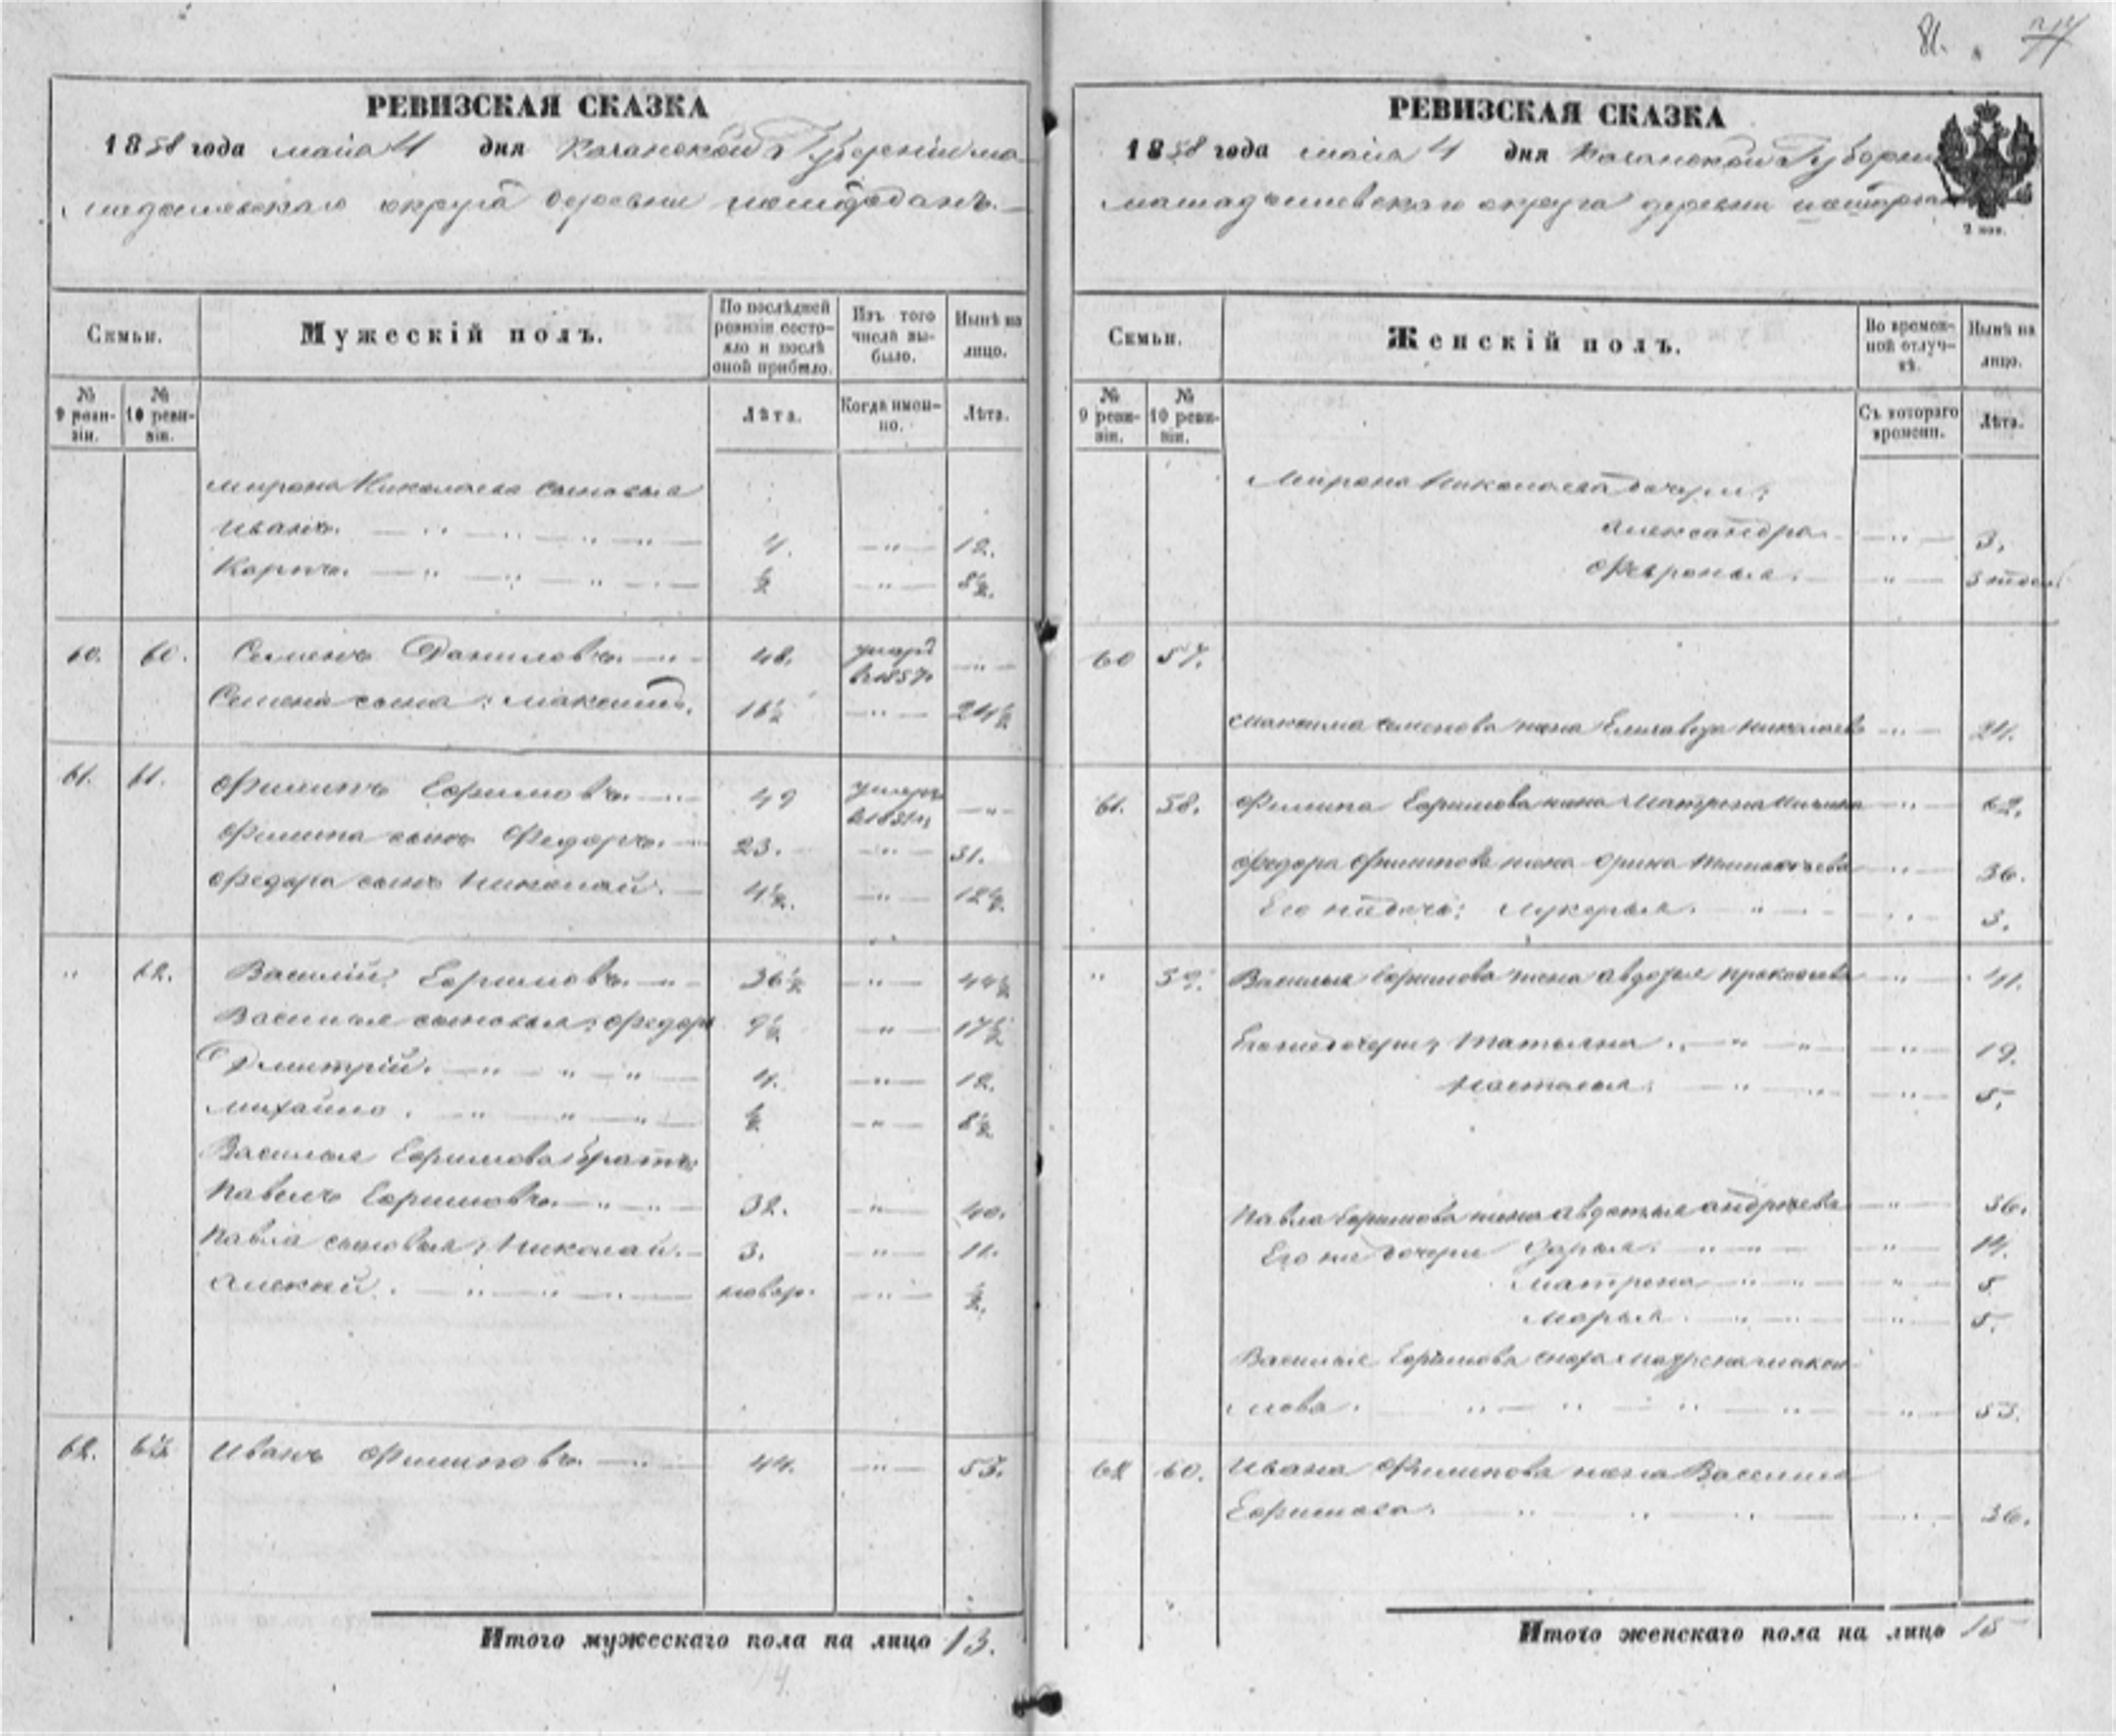 81. 77
РЕВИЗСКАЯ СКАЗКА
1858 года маія 4 дня Казанской Губерніи ма-
мадышевскаго округа деревни
Семьи.
Мужескій полъ.
По послѣдней ревизіи состояло и послѣ оной прибыло.
Изъ того числа выбыло.
Нынѣ на лицо.
№ 9 ревизіи.
№ 10 ревизіи.
Лѣта.
Когда именно.
Лѣта.
Мирона Николаева сыновья
Иванъ. 4. — " — 12.
Карпъ. ½ — " — 8½.
60. 60. Семенъ Даниловъ. — " — 48. умеръ — " —
в 1857.
Семена сынъ: Максимъ. 16½ — " — 24½
61. 61. Филипъ Ефримовъ. — " — 49 умеръ — " —
Филипа сынъ Федоръ. — 23. — " — 31.
Федора сынъ Николай. — 4½. — " — 12½.
" 62. Василій Ефримовъ. — " — 36½ — " — 44½
Василья сыновья: Федоръ 9½ " — 17½
Дмитрій. — " — " — " — 4. — " — 12.
Михайло. — " — " — " — ½ — " — 8½
Василья Ефримова братъ
Павелъ Ефримовъ. — " — " — 32. — " — 40.
Павла сыновья: Николай. — 3. " — 11.
Алексѣй. — " — " — " — новор. — " — ½.
62. 63 Иванъ Филиповъ. — " — 44. — " — 53.
Итого мужескаго пола на лицо 13.
14.
РЕВИЗСКАЯ СКАЗКА
1858 года маія 4 дня Казанской Губерніи
мамадышевскаго округа деревни
2 коп.
Семьи.
Женскій полъ.
Во временной отлучкѣ.
Нынѣ на лицо.
№ 9 ревизіи.
№ 10 ревизіи.
Съ котораго времени.
Лѣта.
Мирона Николаева дочери:
Александра. — " — 3.
Февронья. — " —
60 57.
Максима Семенова жена Елизавета Николаева — " — 24.
61. 58. Филипа Ефримова жена Матрена — " — 62.
Федора Филипова жена Орина — " — 36.
Его же дочь: Лукерья. — " — 3.
" 59. Василья Ефримова жена Авдотья Прокофьева " — 41.
Его же дочери: Татьяна. — " — " — 19.
Настасья. — " — " — 5.
Павла Ефримова жена Авдотья Андреева — " — 36.
Его же дочери Дарья. — " — " — 14.
Матрена. — " — " — 5
Марья. — " — " — 5.
Василья Ефримова сноха Матрена Макси-
мова. — " — " — " — 53.
62 60. Ивана Филипова жена Василиса
Ефимова. — " — " — " — 36.
Итого женскаго пола на лицо 15